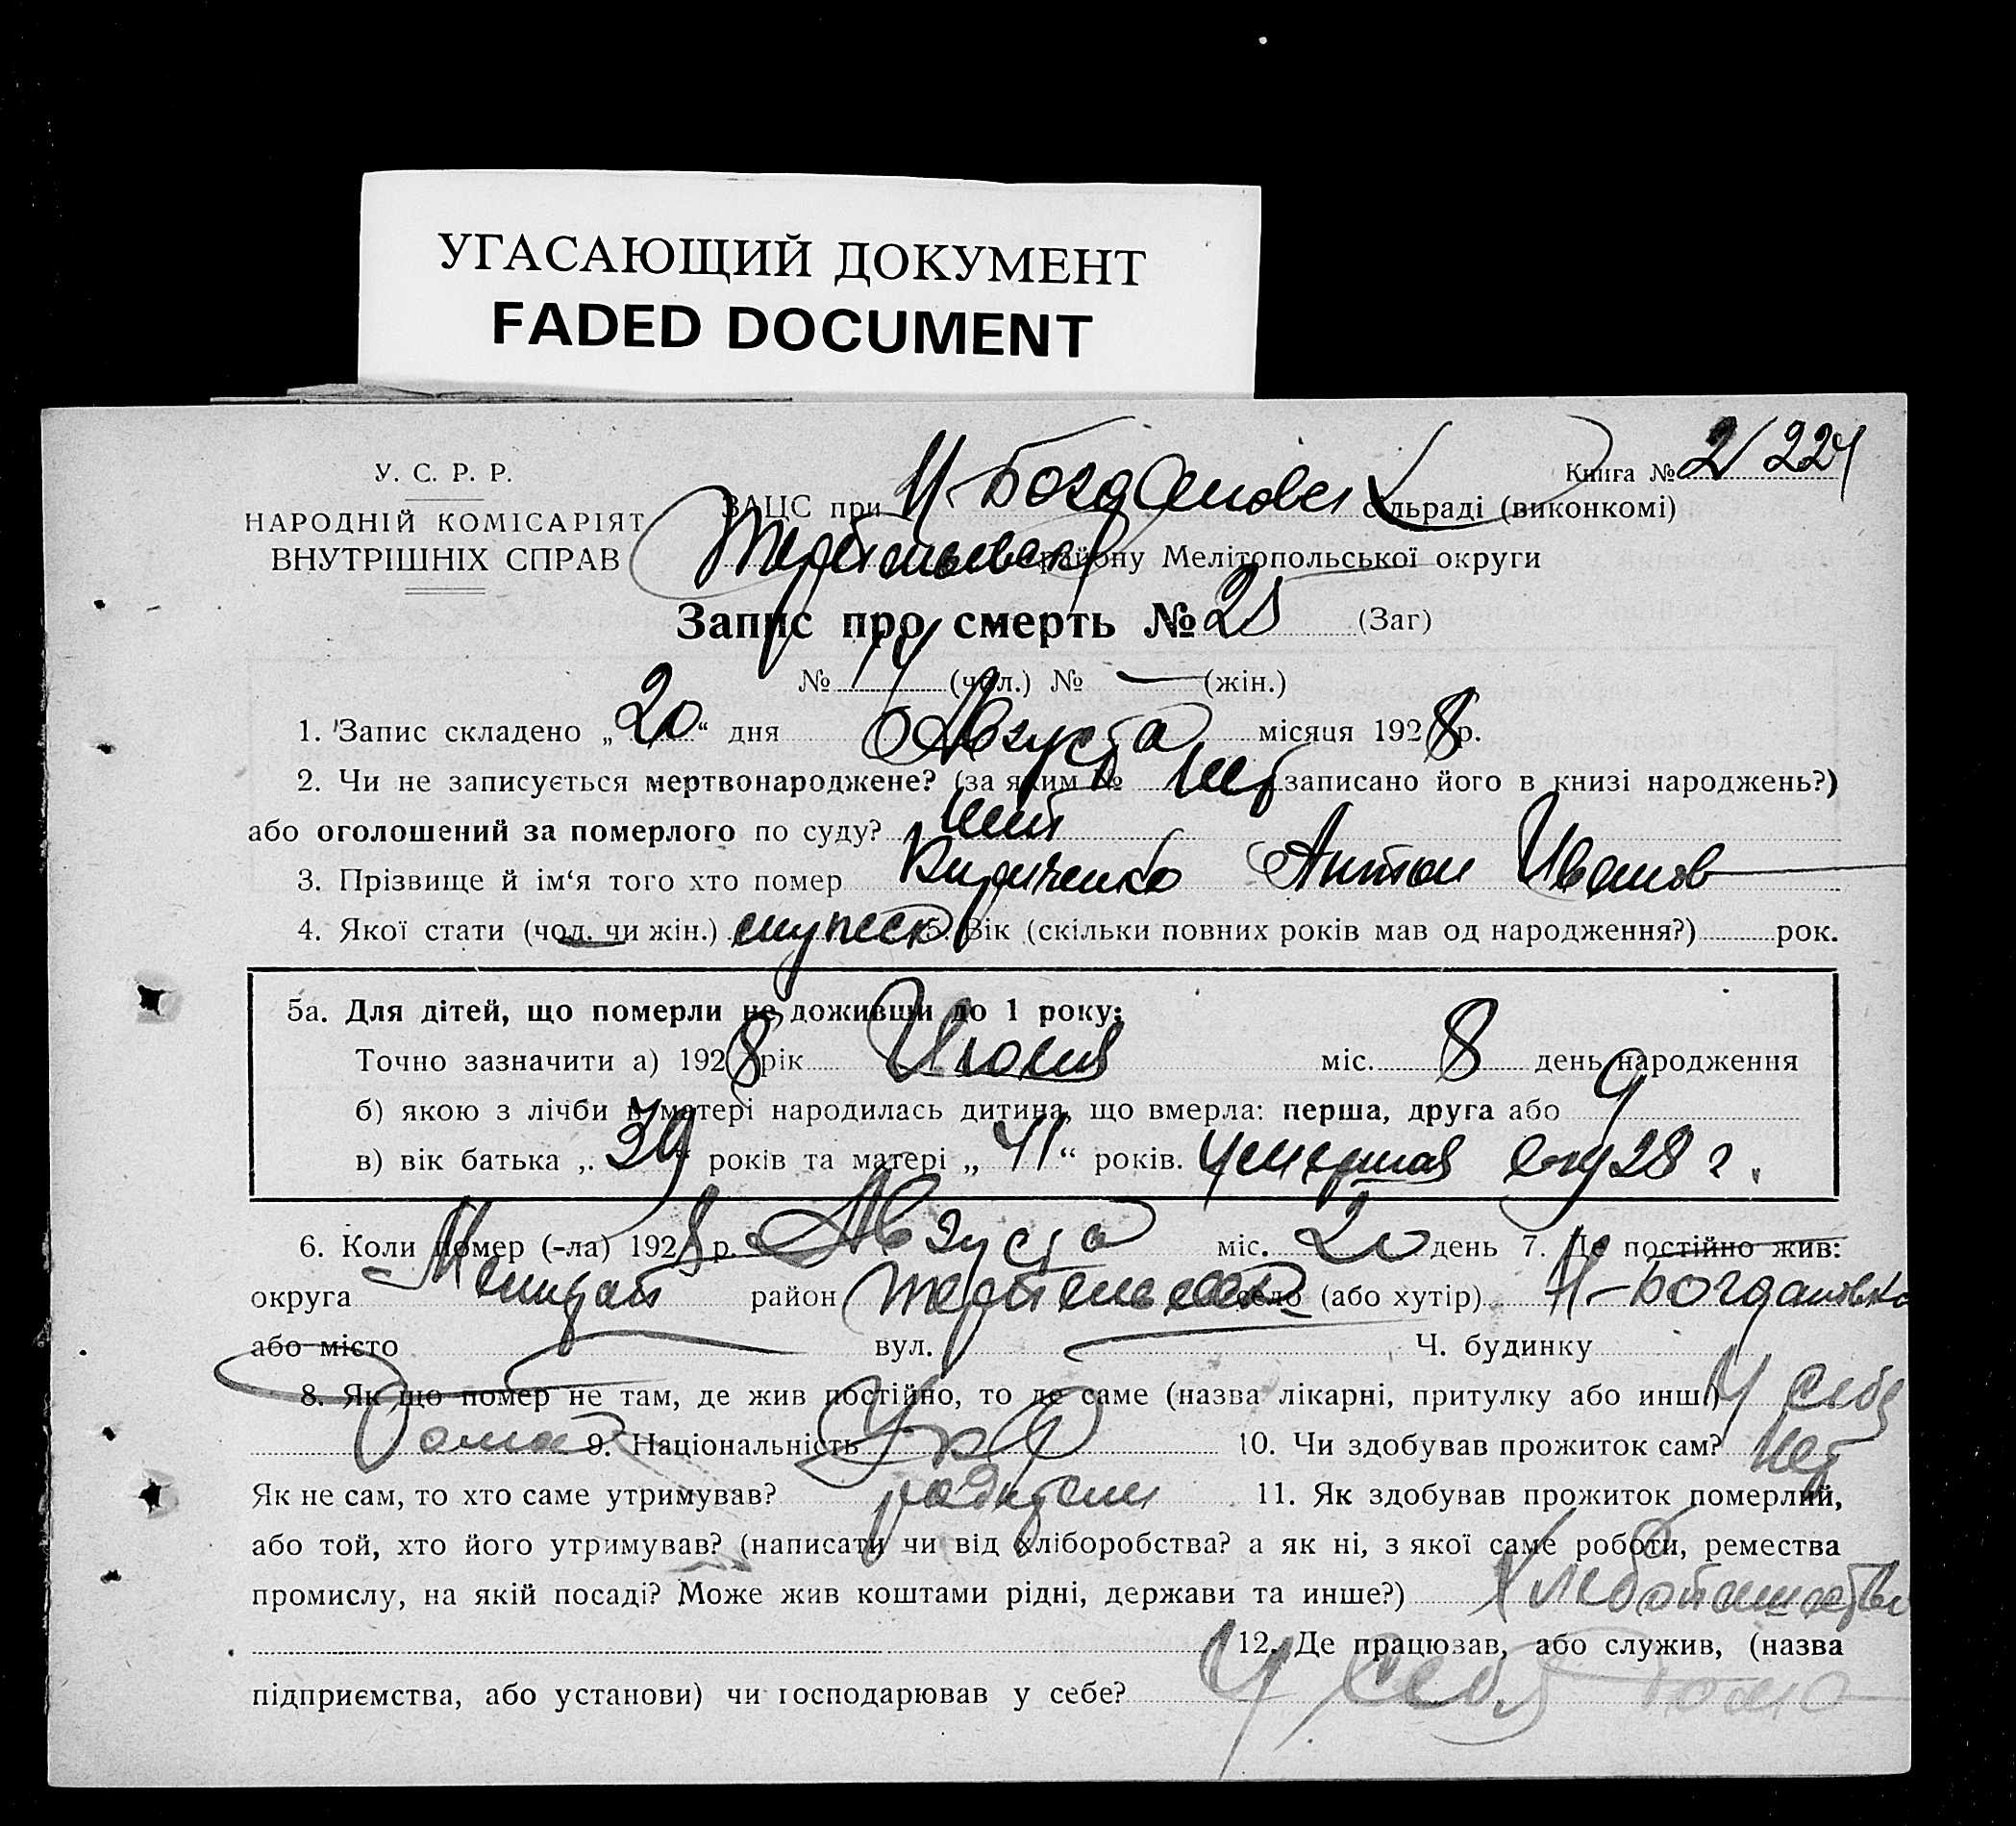 УГАСАЮЩИЙ ДОКУМЕНТ
FADED DOCUMENT
Книга № 2/ 224
У. С. Р. Р.
НАРОДНІЙ КОМІСАРІЯТ
ВНУТРІШНІХ СПРАВ
ЗАЦС при Н-Богдановск сільраді (виконкомі)
району Мелітопольської округи
Запис про смерть № 25 (Заг)
№ 14 (чол.) № — (жін.)
1. Запис складено „20“ дня Августа місяця 1928 р.
2. Чи не записується мертвонароджене? (за яким № нет записано його в книзі народжень?)
або оголошений за померлого по суду? нет
3. Прізвище й ім‘я того хто помер Кириченко Антон Иванов
4. Якої стати (чол. чи жін.) мужеск 5. Вік (скільки повних років мав од народження?) рок.
5а. Для дітей, що померли не доживши до 1 року:
Точно зазначити а) 1928 рік Июня міс. 8 день народження
б) якою з лічби в матері народилась дитина, що вмерла: перша, друга або 9
в) вік батька „39“ років та матері „41“ років. 28 г.
6. Коли помер (-ла) 1928 р. Августа міс. 20 день 7. Де постійно жив:
округа Мелитоп район село (або хутір) Н-Богдановка
або місто вул. Ч. будинку
8. Як що помер не там, де жив постійно, то де саме (назва лікарні, притулку або инші) У себя
дома 9. Національність Укр 10. Чи здобував прожиток сам? Нет
Як не сам, то хто саме утримував? родители 11. Як здобував прожиток померлий,
або той, хто його утримував? (написати чи від хліборобства? а як ні, з якої саме роботи, ремества
промислу, на якій посаді? Може жив коштами рідні, держави та инше?) Хлебопашество
12. Де працював, або служив, (назва
підприємства, або установи) чи господарював у себе? У себя дома